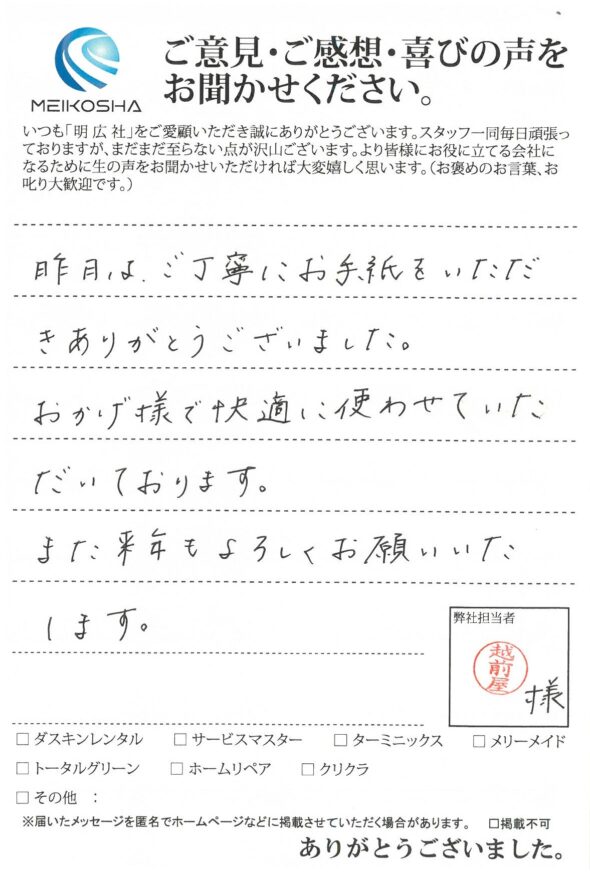 MEIKOSHA
ご意見・ご感想・喜びの声を
お聞かせください。
いつも「明広社」をご愛顧いただき誠にありがとうございます。スタッフ一同毎日頑張っ
ておりますが、まだまだ至らない点が沢山ございます。より皆様にお役に立てる会社に
なるために生の声をお聞かせいただければ大変嬉しく思います。（お褒めのお言葉、お
叱り大歓迎です。）
昨月は、ご丁寧にお手紙をいただ
きありがとうございました。
おかげ様で快適に使わせていた
だいております。
また来年もよろしくお願いいた
します。
弊社担当者
越前屋
様
□ ダスキンレンタル □ サービスマスター □ ターミニックス □ メリーメイド
□ トータルグリーン □ ホームリペア □ クリクラ
□ その他 ：
※届いたメッセージを匿名でホームページなどに掲載させていただく場合があります。 □掲載不可
ありがとうございました。